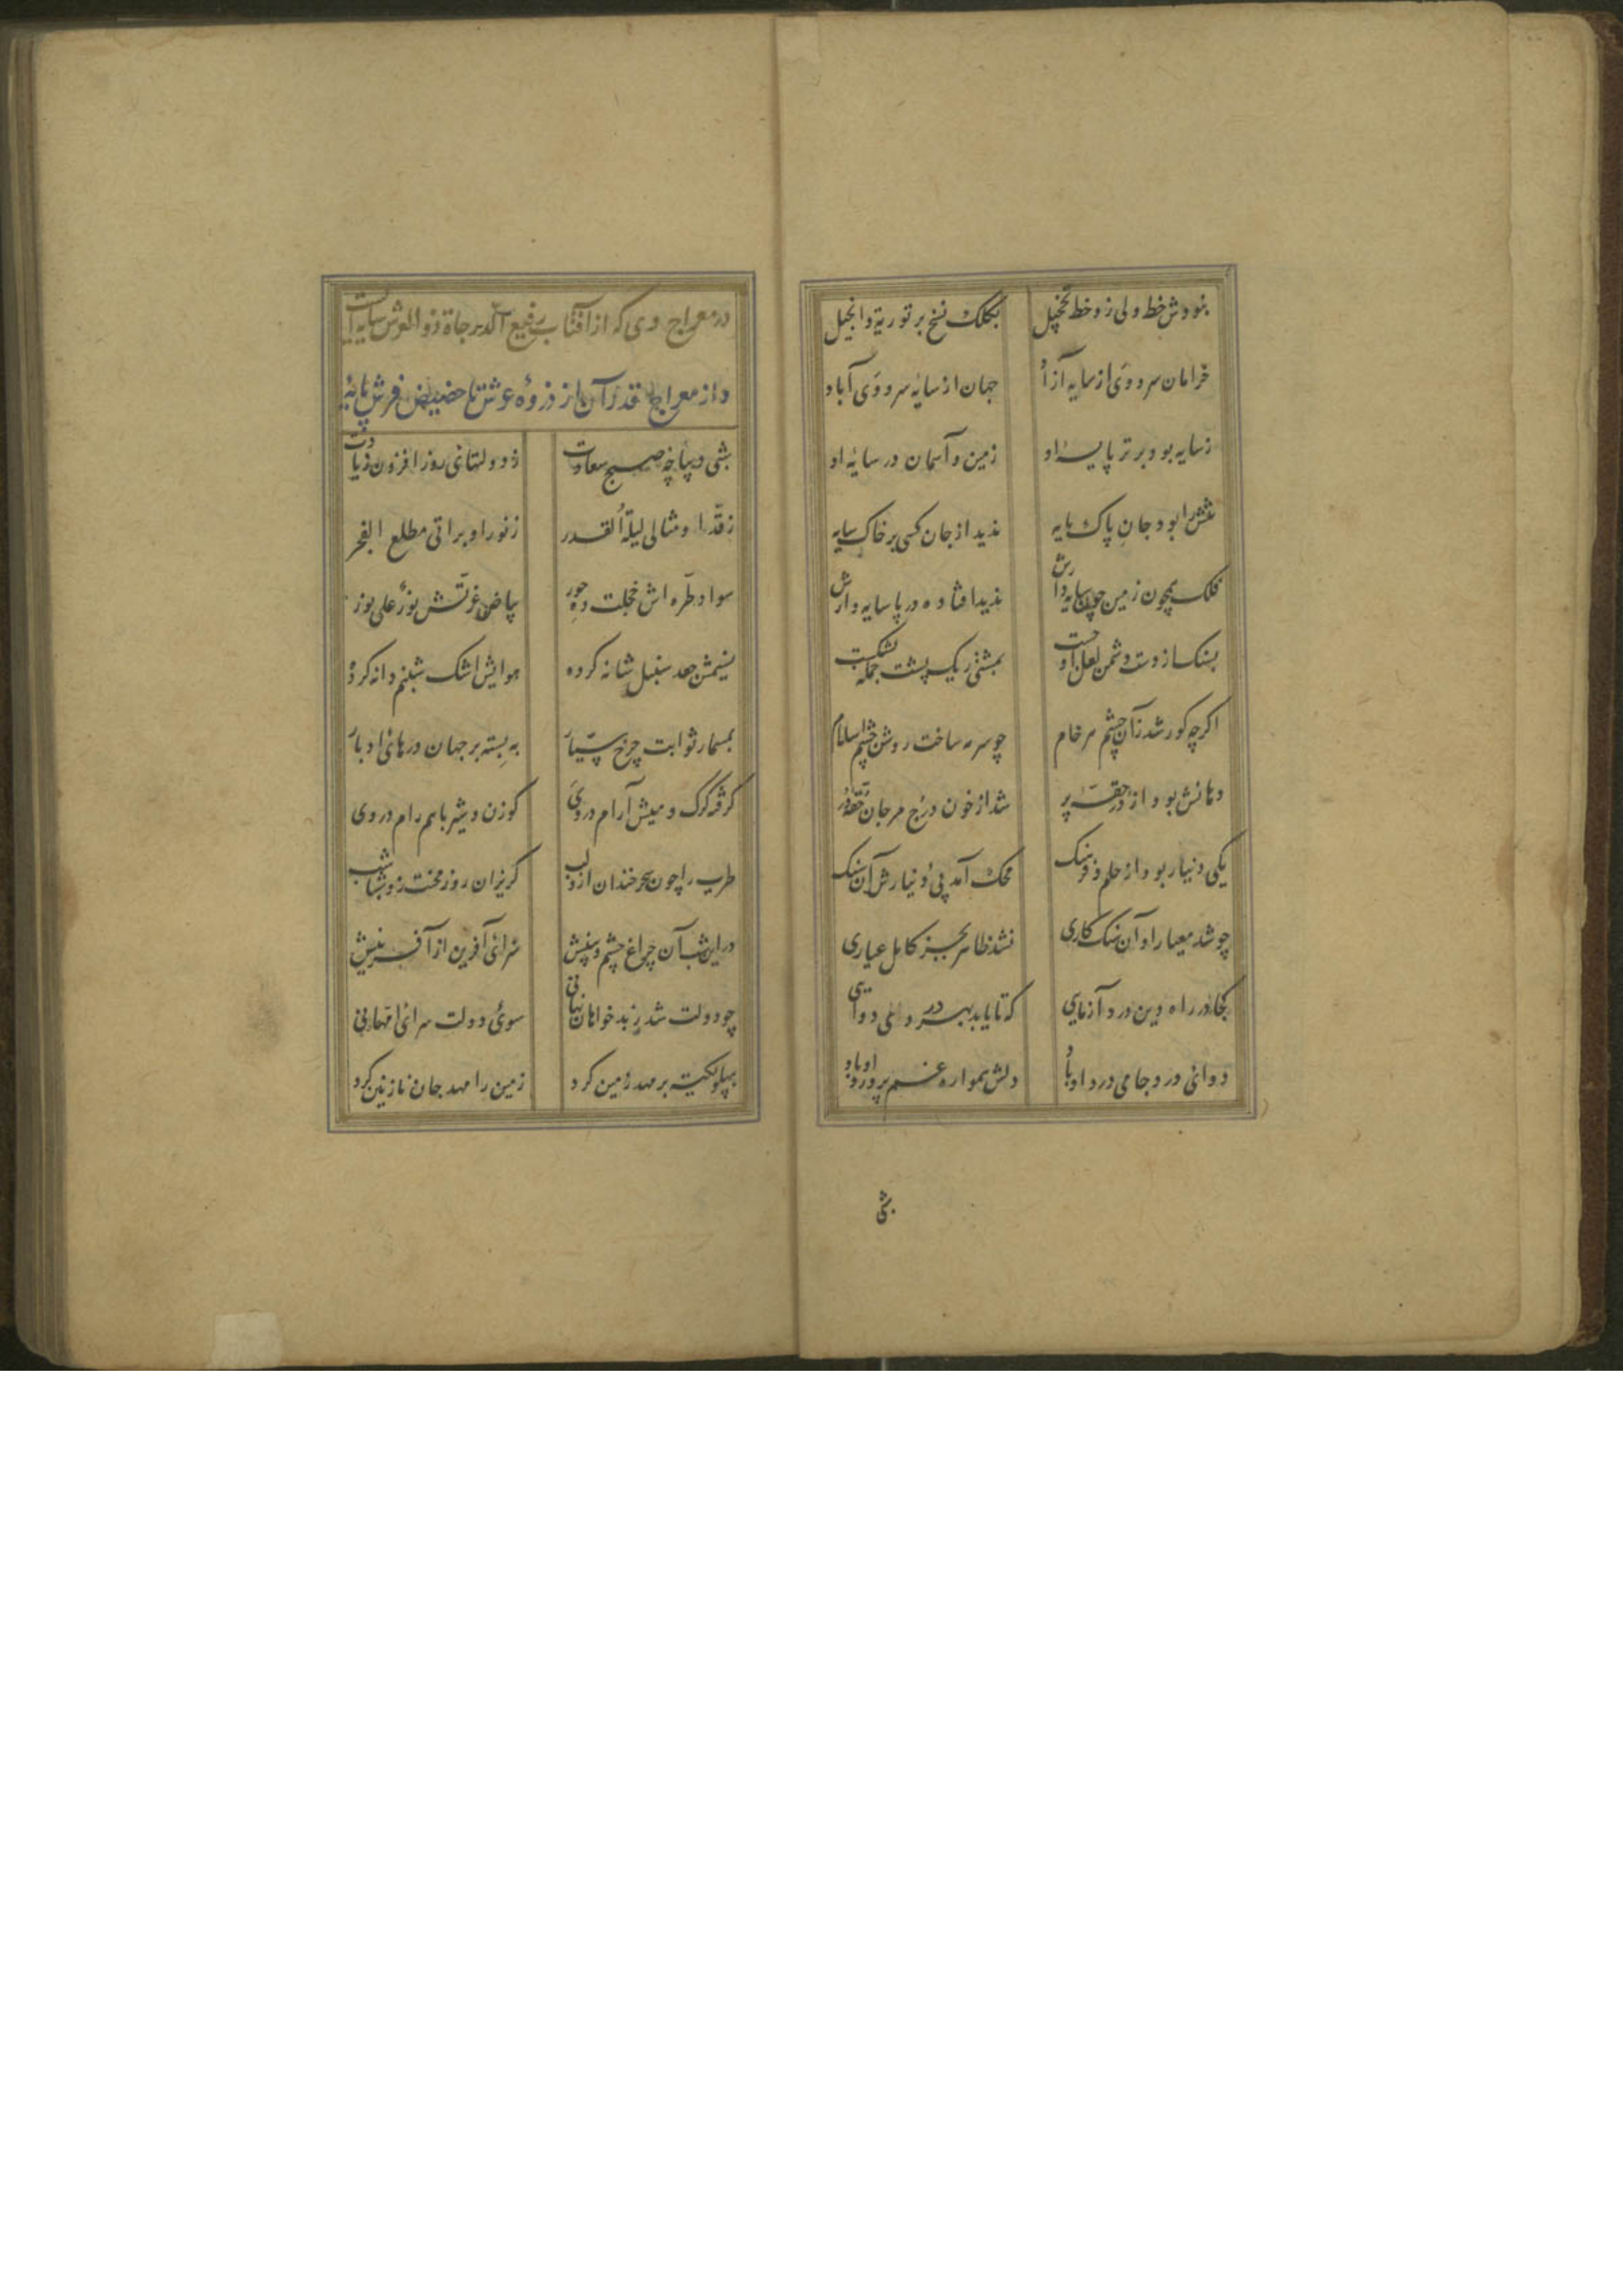 نبودش خط ولی زد خط تخییل بکلک نسخ بر توریة وانجیل
خرامان سرو وی از سایه آزاد جهان از سایۀ سرو وی آباد
ز سایه بود برتر پایۀ او زمین و آسمان در سایۀ او
تنش را بود جان پاک مایه ندید از جان کسی بر خاک سایه
فلک همچون زمین چون سایه دارش ندید افتاده در پا سایه وارش
بسنک از دست دشمن لعل او خست بمشتی ریک پشت جمله بشکست
اکر چه کور شد زان چشم هر خام چو سرمه ساخت روشن چشم اسلام
دهانش بود از در حقۀ پر شد از خون درج مرجان حقۀ در
یکی دینار بود از حلم و فرهنک محک آمد پی دینارش آن سنک
چو شد معیار او آن سنک کاری نشد ظاهر بجز کامل عیاری
کجا در راه دین درد آزمایی که تا یابد بهر دردی دوایی
دوای درد جامی درد او باد دلش همواره غم پرورد او باد
شبی
در معراج وی که از آفتاب رفیع الدرجاة ذو العرش سایه ایست
و از معراج قدر آن از ذروۀ عرش تا حضیض فرش پایه
شبی دیباچۀ صبح سعادت ز دولتهای روز افزون زیادت
ز قدر او مثالی لیلة القدر ز نور او براتی مطلع الفجر
سواد طره اش خجلت ده حور بیاض غرتش نور علی نور
نسیمش جعد سنبل شانه کرده هوایش اشک شبنم دانه کرده
بمسمار ثوابت چرخ سیار به بسته بر جهان درهای ادبار
کرفته کرک و میش آرام در وی کوزن و شیر با هم رام در وی
طرب را چون سحر خندان ازو لب کریزان روز محنت زو شباشب
در این شب آن چراغ چشم بینش سزای آفرین از آفرینش
چو دولت شد ز بدخواهان نهانی سوی دولت سرای امهانی
بپهلو تکیه بر مهد زمین کرد زمین را مهد جان نازنین کرد